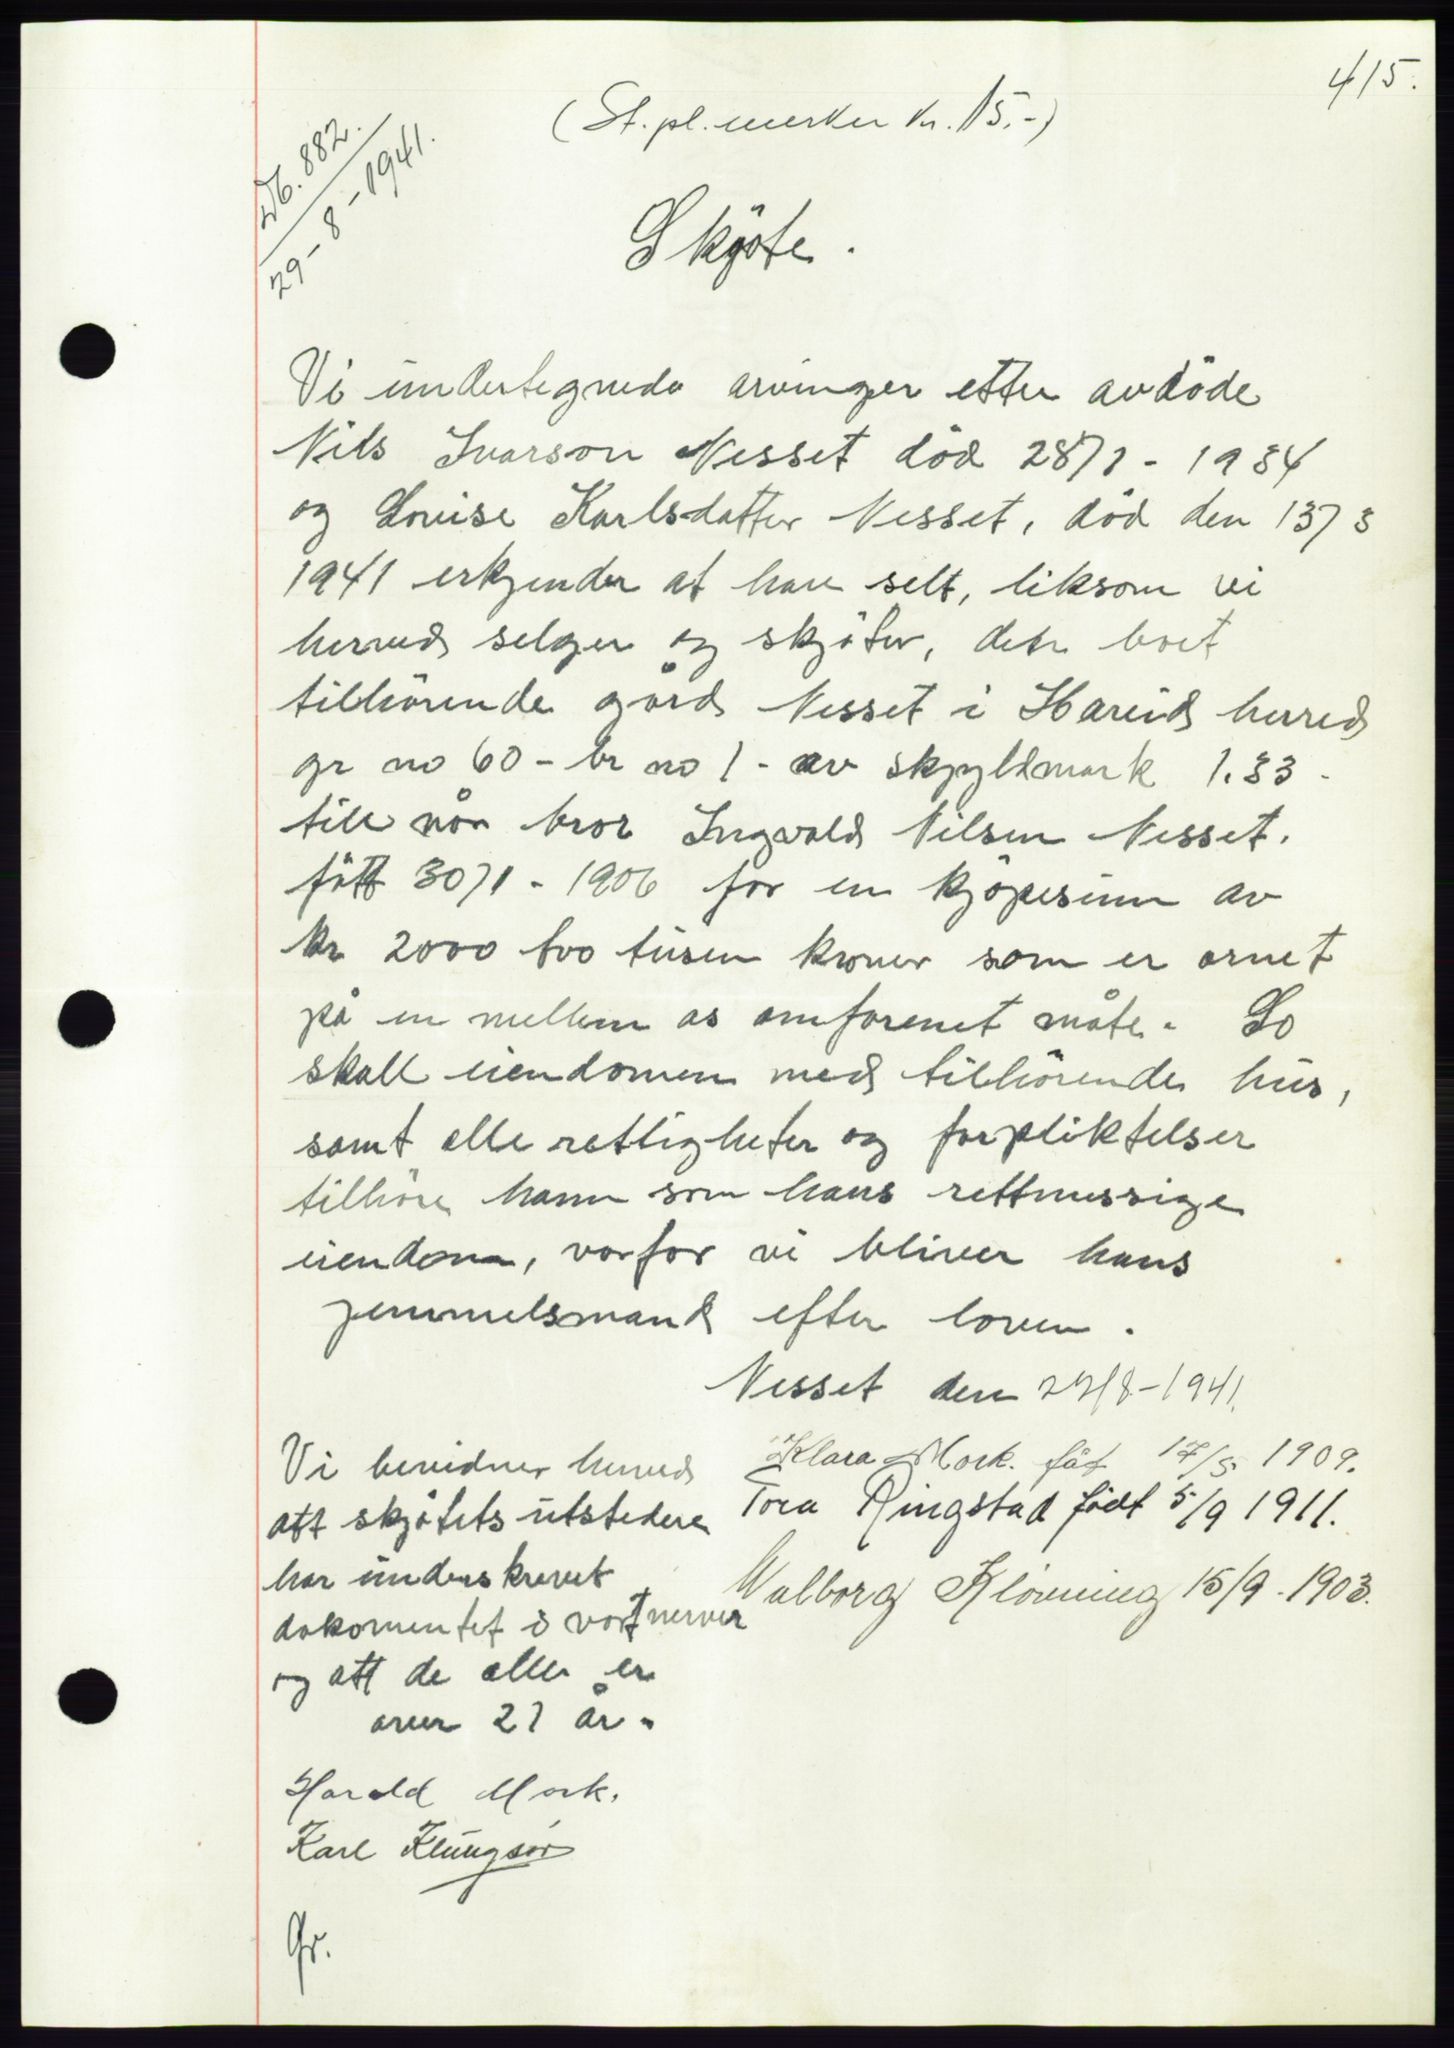 415.
(St.pl.merker kr. 15.-)
Db. 882.
29-8-1941.
Skjöte.
Vi undertegnede arvinger etter avdöde
Nils Ivarson Nesset död 28/1 - 1934
og Lovise Karlsdatter Nesset, död den 13/3
1941 erkjender at have selt, liksom vi
herved selger og skjöter, den boet
tilhörende gård Nesset i Hareid herred
gr no 60 - br no 1 - av skyldmark 1.33 -
till vår bror Ingvald Nilsen Nesset.
fött 30/1 - 1906 for en kjöpesum av
kr 2000 tvo tusen kroner som er ornet
på en mellem os omforenet måte. So
skall eiendomen med tilhörende hus,
samt alle rettigheter og forpliktelser
tilhöre hann som hans rettmessige
eiendom, vorfor vi bliver hans
jemmelsmand efter loven.
Nesset den 27/8-1941.
Klara Mork. föt 17/5 1909.
Tora Ringstad födt 5/9 1911.
Valborg Klovning 15/9 - 1903.
Vi bevidner herved
att skjötets utstedere
har underskrevet
dokomentet i vort nerver
og att de alle er
over 21 år.
Harald Mork.
Karl Klungsör
Gr.